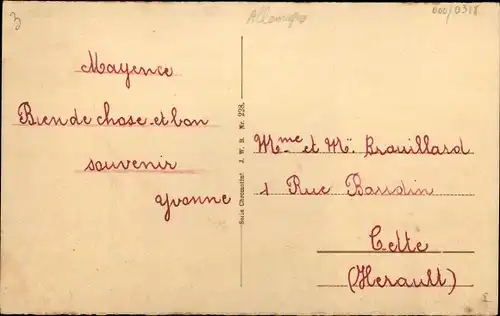 3
Allemagne
000/0318
Mayence
Bien de chose et bon
souvenir
Yvonne
Serie Chromotint J. W. B. Nr. 228.
Mme et Mr Brouillard
1 Rue Baudin
Cette
(Herault)